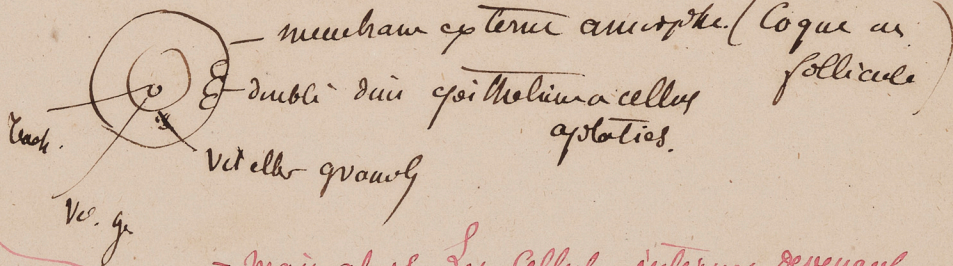 membrane externe amorphe. (Coque ou
follicule)
doublé d'un épithélium à cellules
aplaties.
Tach.
Vitellus granul
Vé. ge
Mais alors Les Cellules internes devenant